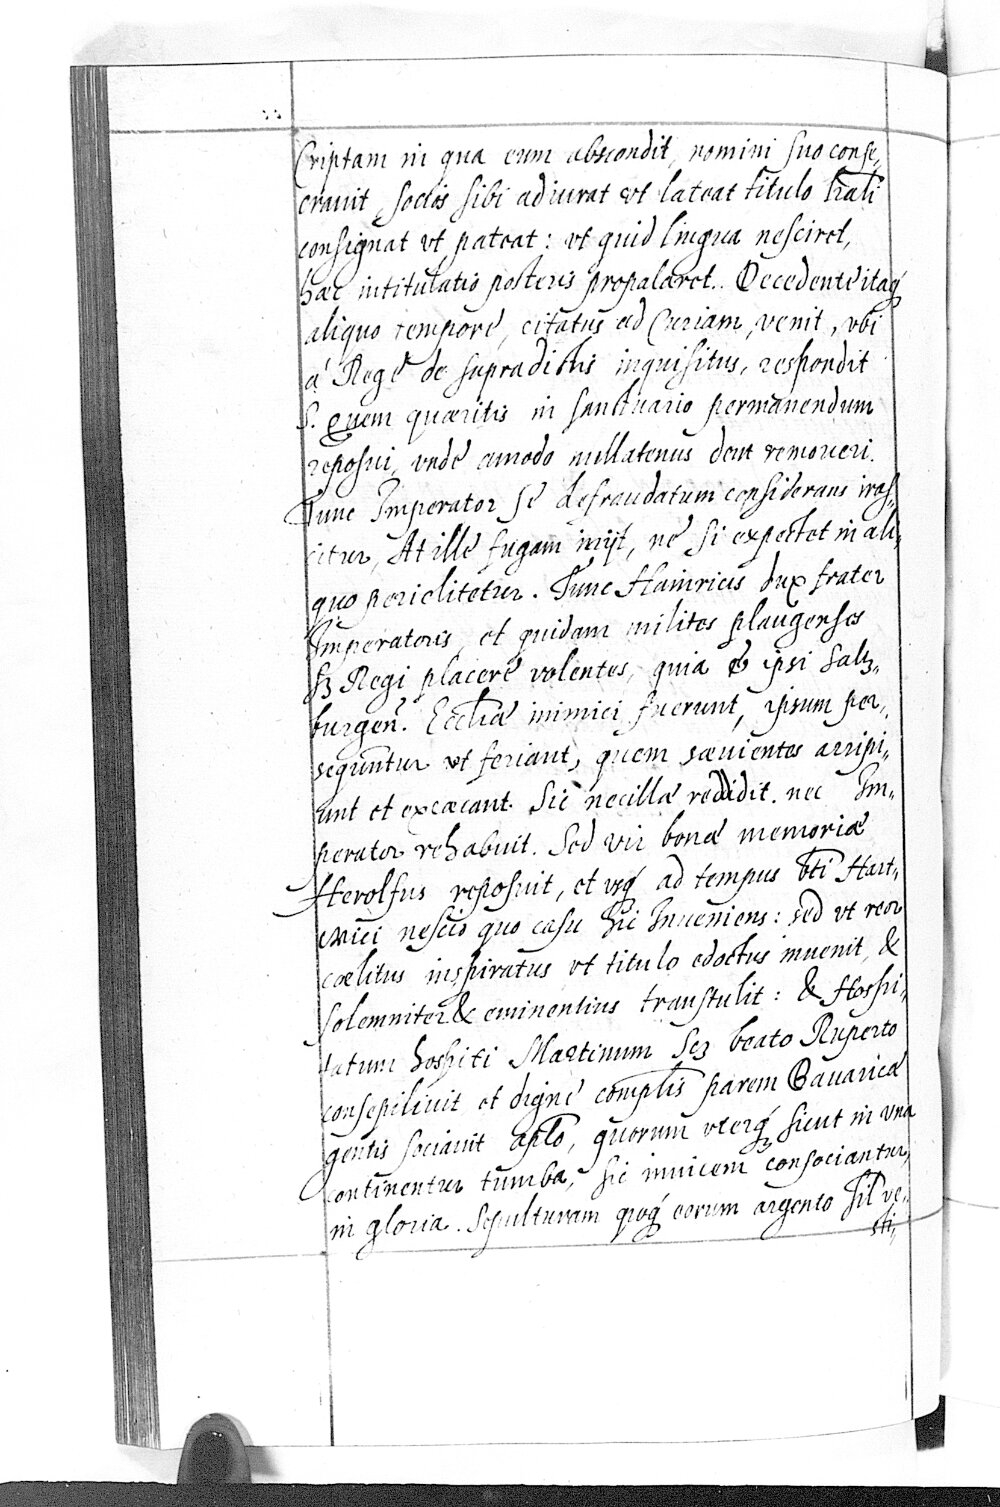 Criptam in qua eum abscondit, nomini suo conse,
crauit, socios sibi adiurat vt lateat titulo trali
consignat vt pateat: vt quid lingua nesciret,
hæc intitulatio posteris propalaret. Decedente itaq́
aliquo tempore, citatus ad Curiam, venit, vbi
á Rege de supradictis inquisitus, respondit
S. quem quæritis in sanctuario permanendum
reposui, vnde amodo nullatenus debet remoueri.
Tunc Imperator se defraudatum considerans iras,
citur, At ille fugam inijt, ne si expectet in ali,
quo periclitetur. Tunc Hainricus dux frater
Imperatoris, et quidam milites plaugenses
sz Regi placere volentes, quia & ipsi Saltz,
burgen̄. Eccl̄iæ inimici fuerunt, ipsum per,
sequuntur vt feriant, quem sæuientes arripi,
unt et excæcant. Sic nec illæ reddidit. nec Im,
perator rehabuit. Sed vir bonæ memoriæ
Herolfus reposuit, et vsq́ ad tempus bt̄i Hart,
wici nescio quo casu hic Inueniens: sed vt reor
cœlitus inspiratus vt titulo edoctus inuenit, &
solemniter & eminentius transtulit: & Hospi,
tatum hospiti Martinum Scz beato Ruperto
consepiliuit et digne compl̄is parem Bauaricæ
gentis sociauit ap̄lo, quorum vterq́ sicut in vna
continentur tumba, sic inuicem consociantur,
in gloria. Sepulturam quoq́ eorum argento sil ve,
sti,